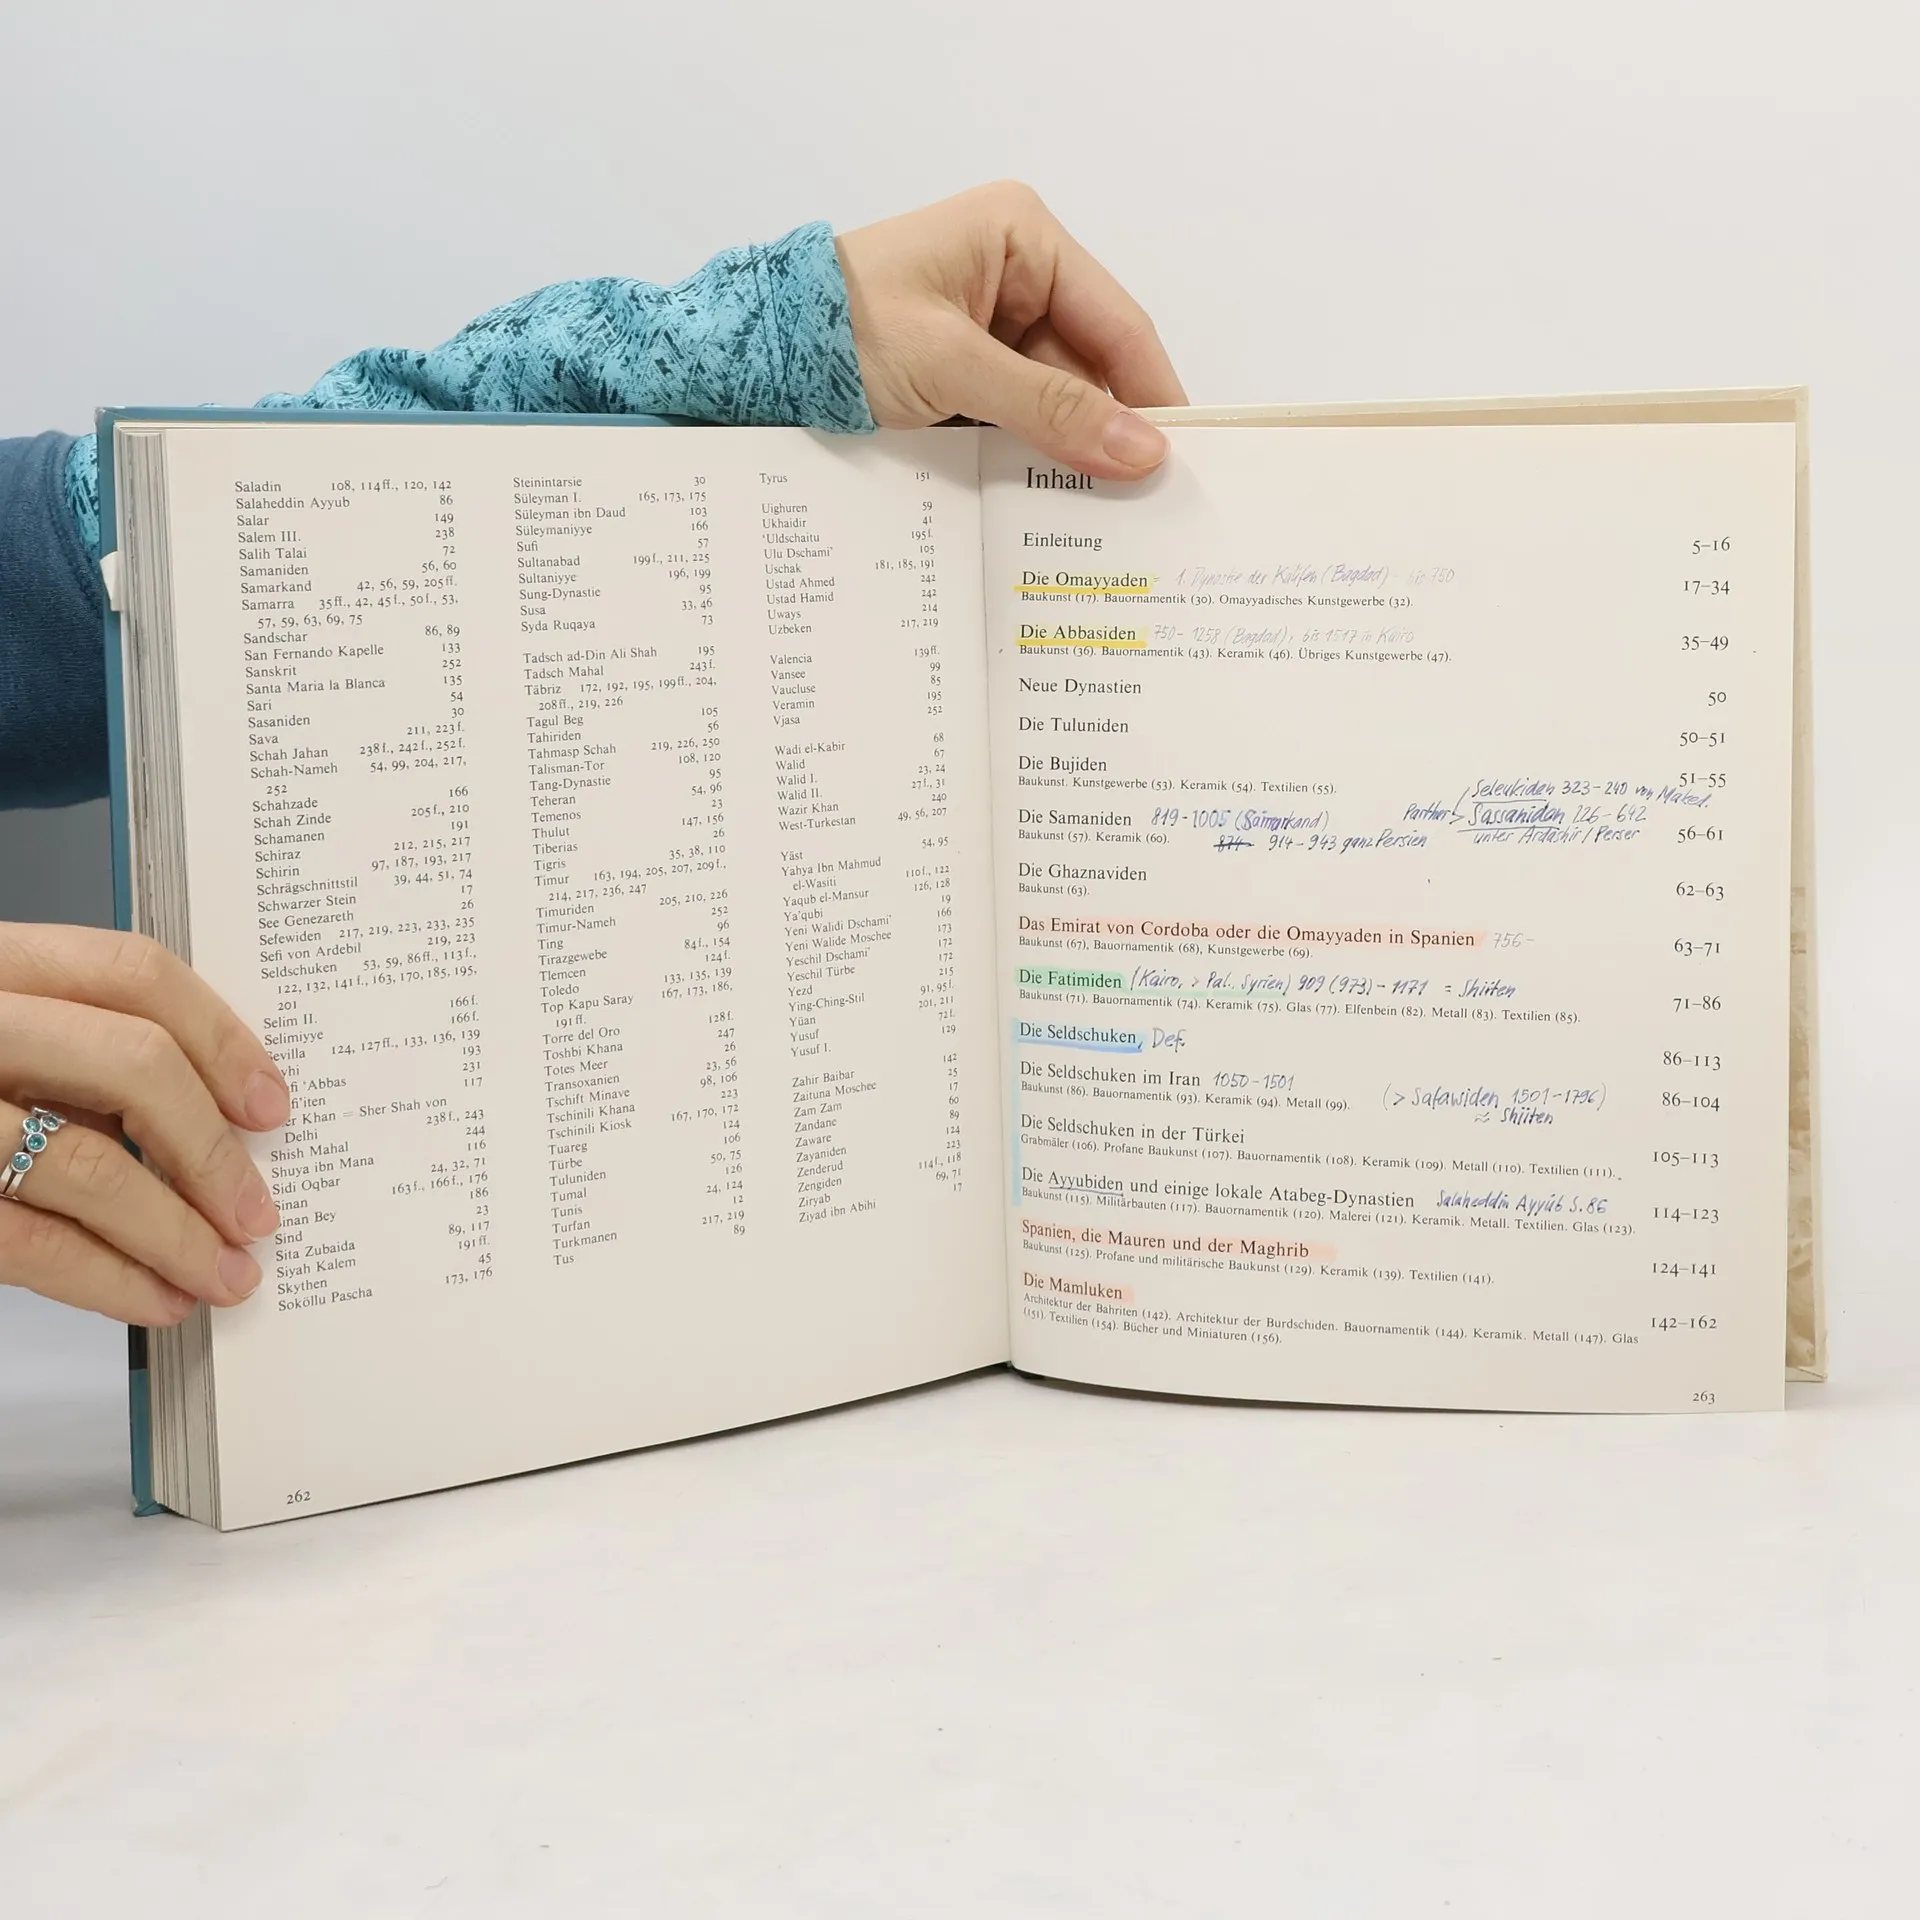 Saladin 108, 114ff., 120, 142
Salaheddin Ayyub 86
Salar 149
Salem III. 238
Salih Talai 72
Samaniden 56, 60
Samarkand 42, 56, 59, 205ff.
Samarra 35ff., 42, 45f., 50f., 53,
57, 59, 63, 69, 75
Sandschar 86, 89
San Fernando Kapelle 133
Sanskrit 252
Santa Maria la Blanca 135
Sari 54
Sasaniden 30
Sava 211, 223f.
Schah Jahan 238f., 242f., 252f.
Schah-Nameh 54, 99, 204, 217,
252
Schahzade 166
Schah Zinde 205f., 210
Schamanen 191
Schiraz 212, 215, 217
Schirin 97, 187, 193, 217
Schrägschnittstil 39, 44, 51, 74
Schwarzer Stein 17
See Genezareth 26
Sefewiden 217, 219, 223, 233, 235
Sefi von Ardebil 219, 223
Seldschuken 53, 59, 86ff., 113f.,
122, 132, 141f., 163, 170, 185, 195,
201
Selim II. 166f.
Selimiyye 166f.
Sevilla 124, 127ff., 133, 136, 139
vhi 193
fi 'Abbas 231
fi'iten 117
er Khan = Sher Shah von
Delhi 238f., 243
Shish Mahal 244
Shuya ibn Mana 116
Sidi Oqbar 24, 32, 71
Sinan 163f., 166f., 176
Sinan Bey 186
Sind 23
Sita Zubaida 89, 117
Siyah Kalem 191ff.
Skythen 45
Soköllu Pascha 173, 176
Steinintarsie 30
Süleyman I. 165, 173, 175
Süleyman ibn Daud 103
Süleymaniyye 166
Sufi 57
Sultanabad 199f., 211, 225
Sultaniyye 196, 199
Sung-Dynastie 95
Susa 33, 46
Syda Ruqaya 73
Tadsch ad-Din Ali Shah 195
Tadsch Mahal 243f.
Täbriz 172, 192, 195, 199ff., 204,
208ff., 219, 226
Tagul Beg 105
Tahiriden 56
Tahmasp Schah 219, 226, 250
Talisman-Tor 108, 120
Tang-Dynastie 95
Teheran 54, 96
Temenos 23
Thulut 147, 156
Tiberias 26
Tigris 35, 38, 110
Timur 163, 194, 205, 207, 209f.,
214, 217, 236, 247
Timuriden 205, 210, 226
Timur-Nameh 252
Ting 96
Tirazgewebe 84f., 154
Tlemcen 124f.
Toledo 133, 135, 139
Top Kapu Saray 167, 173, 186,
191ff.
Torre del Oro 128f.
Toshbi Khana 247
Totes Meer 26
Transoxanien 23, 56
Tschift Minave 98, 106
Tschinili Khana 223
Tschinili Kiosk 167, 170, 172
Tuareg 124
Türbe 106
Tuluniden 50, 75
Tumal 126
Tunis 24, 124
Turfan 12
Turkmanen 217, 219
Tus 89
Tyrus 151
Uighuren 59
Ukhaidir 41
'Uldschaitu 195f.
Ulu Dschami' 105
Uschak 181, 185, 191
Ustad Ahmed 242
Ustad Hamid 242
Uways 214
Uzbeken 217, 219
Valencia 139ff.
Vansee 99
Vaucluse 85
Veramin 195
Vjasa 252
Wadi el-Kabir 68
Walid 67
Walid I. 23, 24
Walid II. 27f., 31
Wazir Khan 240
West-Turkestan 49, 56, 207
Yäst 54, 95
Yahya Ibn Mahmud
el-Wasiti 110f., 122
Yaqub el-Mansur 126, 128
Ya'qubi 19
Yeni Walidi Dschami' 166
Yeni Walide Moschee 173
Yeschil Dschami' 172
Yeschil Türbe 172
Yezd 215
Ying-Ching-Stil 91, 95f.
Yüan 201, 211
Yusuf 72f.
Yusuf I. 129
Zahir Baibar 142
Zaituna Moschee 25
Zam Zam 17
Zandane 60
Zaware 89
Zayaniden 124
Zenderud 223
Zengiden 114f., 118
Ziryab 69, 71
Ziyad ibn Abihi 17
262
Inhalt
Einleitung 5–16
Die Omayyaden = 1. Dynastie der Kalifen (Bagdad) bis 750 17–34
Baukunst (17). Bauornamentik (30). Omayyadisches Kunstgewerbe (32).
Die Abbasiden 750–1258 (Bagdad), bis 1517 in Kairo 35–49
Baukunst (36). Bauornamentik (43). Keramik (46). Übriges Kunstgewerbe (47).
Neue Dynastien 50
Die Tuluniden 50–51
Die Bujiden 51–55
Baukunst. Kunstgewerbe (53). Keramik (54). Textilien (55).
Seleukiden 323–240 von Maked.
Die Samaniden 819–1005 (Samarkand) Parther > Sassaniden 226–642 56–61
Baukunst (57). Keramik (60). 874– 914–943 ganz Persien unter Ardaschir / Perser
Die Ghaznaviden 62–63
Baukunst (63).
Das Emirat von Cordoba oder die Omayyaden in Spanien 756– 63–71
Baukunst (67), Bauornamentik (68), Kunstgewerbe (69).
Die Fatimiden (Kairo, > Pal., Syrien) 909 (973)–1171 = Shiiten 71–86
Baukunst (71). Bauornamentik (74). Keramik (75). Glas (77). Elfenbein (82). Metall (83). Textilien (85).
Die Seldschuken, Def. 86–113
Die Seldschuken im Iran 1050–1501 (> Safawiden 1501–1796) 86–104
Baukunst (86). Bauornamentik (93). Keramik (94). Metall (99). ≈ Shiiten
Die Seldschuken in der Türkei 105–113
Grabmäler (106). Profane Baukunst (107). Bauornamentik (108). Keramik (109). Metall (110). Textilien (111).
Die Ayyubiden und einige lokale Atabeg-Dynastien Salaheddin Ayyub S. 86 114–123
Baukunst (115). Militärbauten (117). Bauornamentik (120). Malerei (121). Keramik. Metall. Textilien. Glas (123).
Spanien, die Mauren und der Maghrib 124–141
Baukunst (125). Profane und militärische Baukunst (129). Keramik (139). Textilien (141).
Die Mamluken 142–162
Architektur der Bahriten (142). Architektur der Burdschiden. Bauornamentik (144). Keramik. Metall (147). Glas
(151). Textilien (154). Bücher und Miniaturen (156).
263